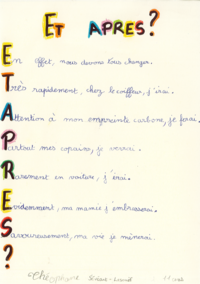 ET APRES?
En effet, nous devons tous changer.
Très rapidement, chez le coiffeur, j'irai.
Attention à mon empreinte carbone, je ferai.
Partout mes copains, je verrai.
Rarement en voiture, j'irai.
Evidemment, ma mamie j'embrasserai.
Savoureusement, ma vie je mènerai.
?